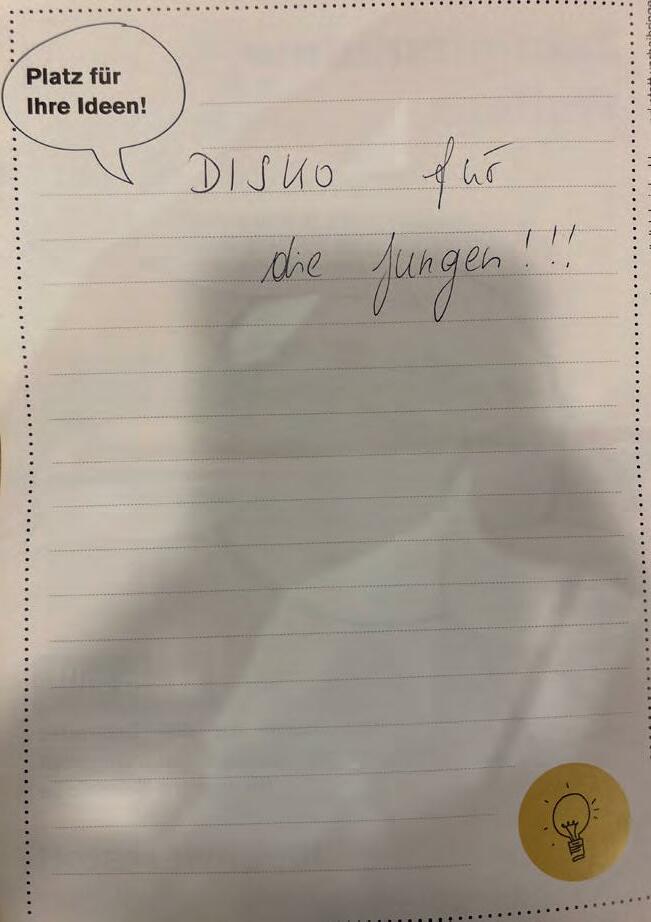 Platz für
Ihre Ideen!
DISKO für
die Jungen!!!